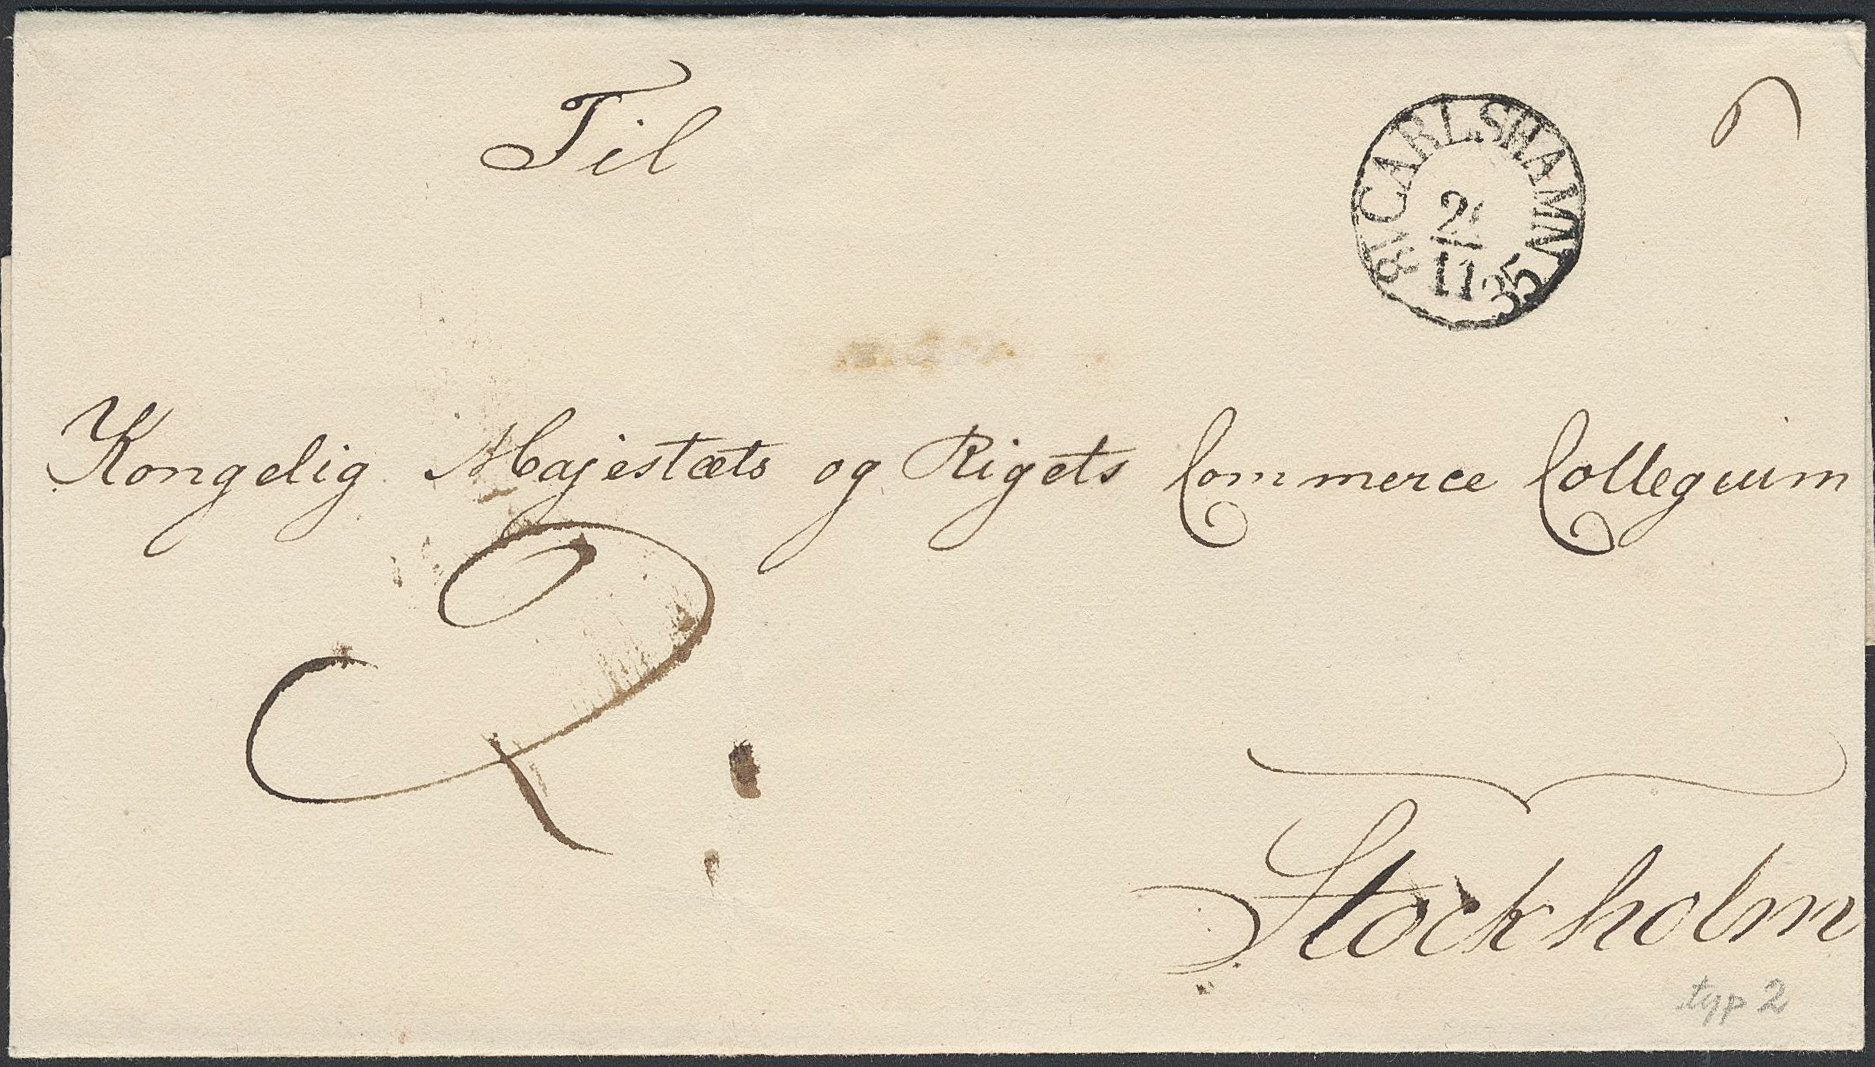 Til
CARLSHAMN
11
Kongelig Majestæts og Rigets Commerce Collegium
2.
Stockholm
typ 2